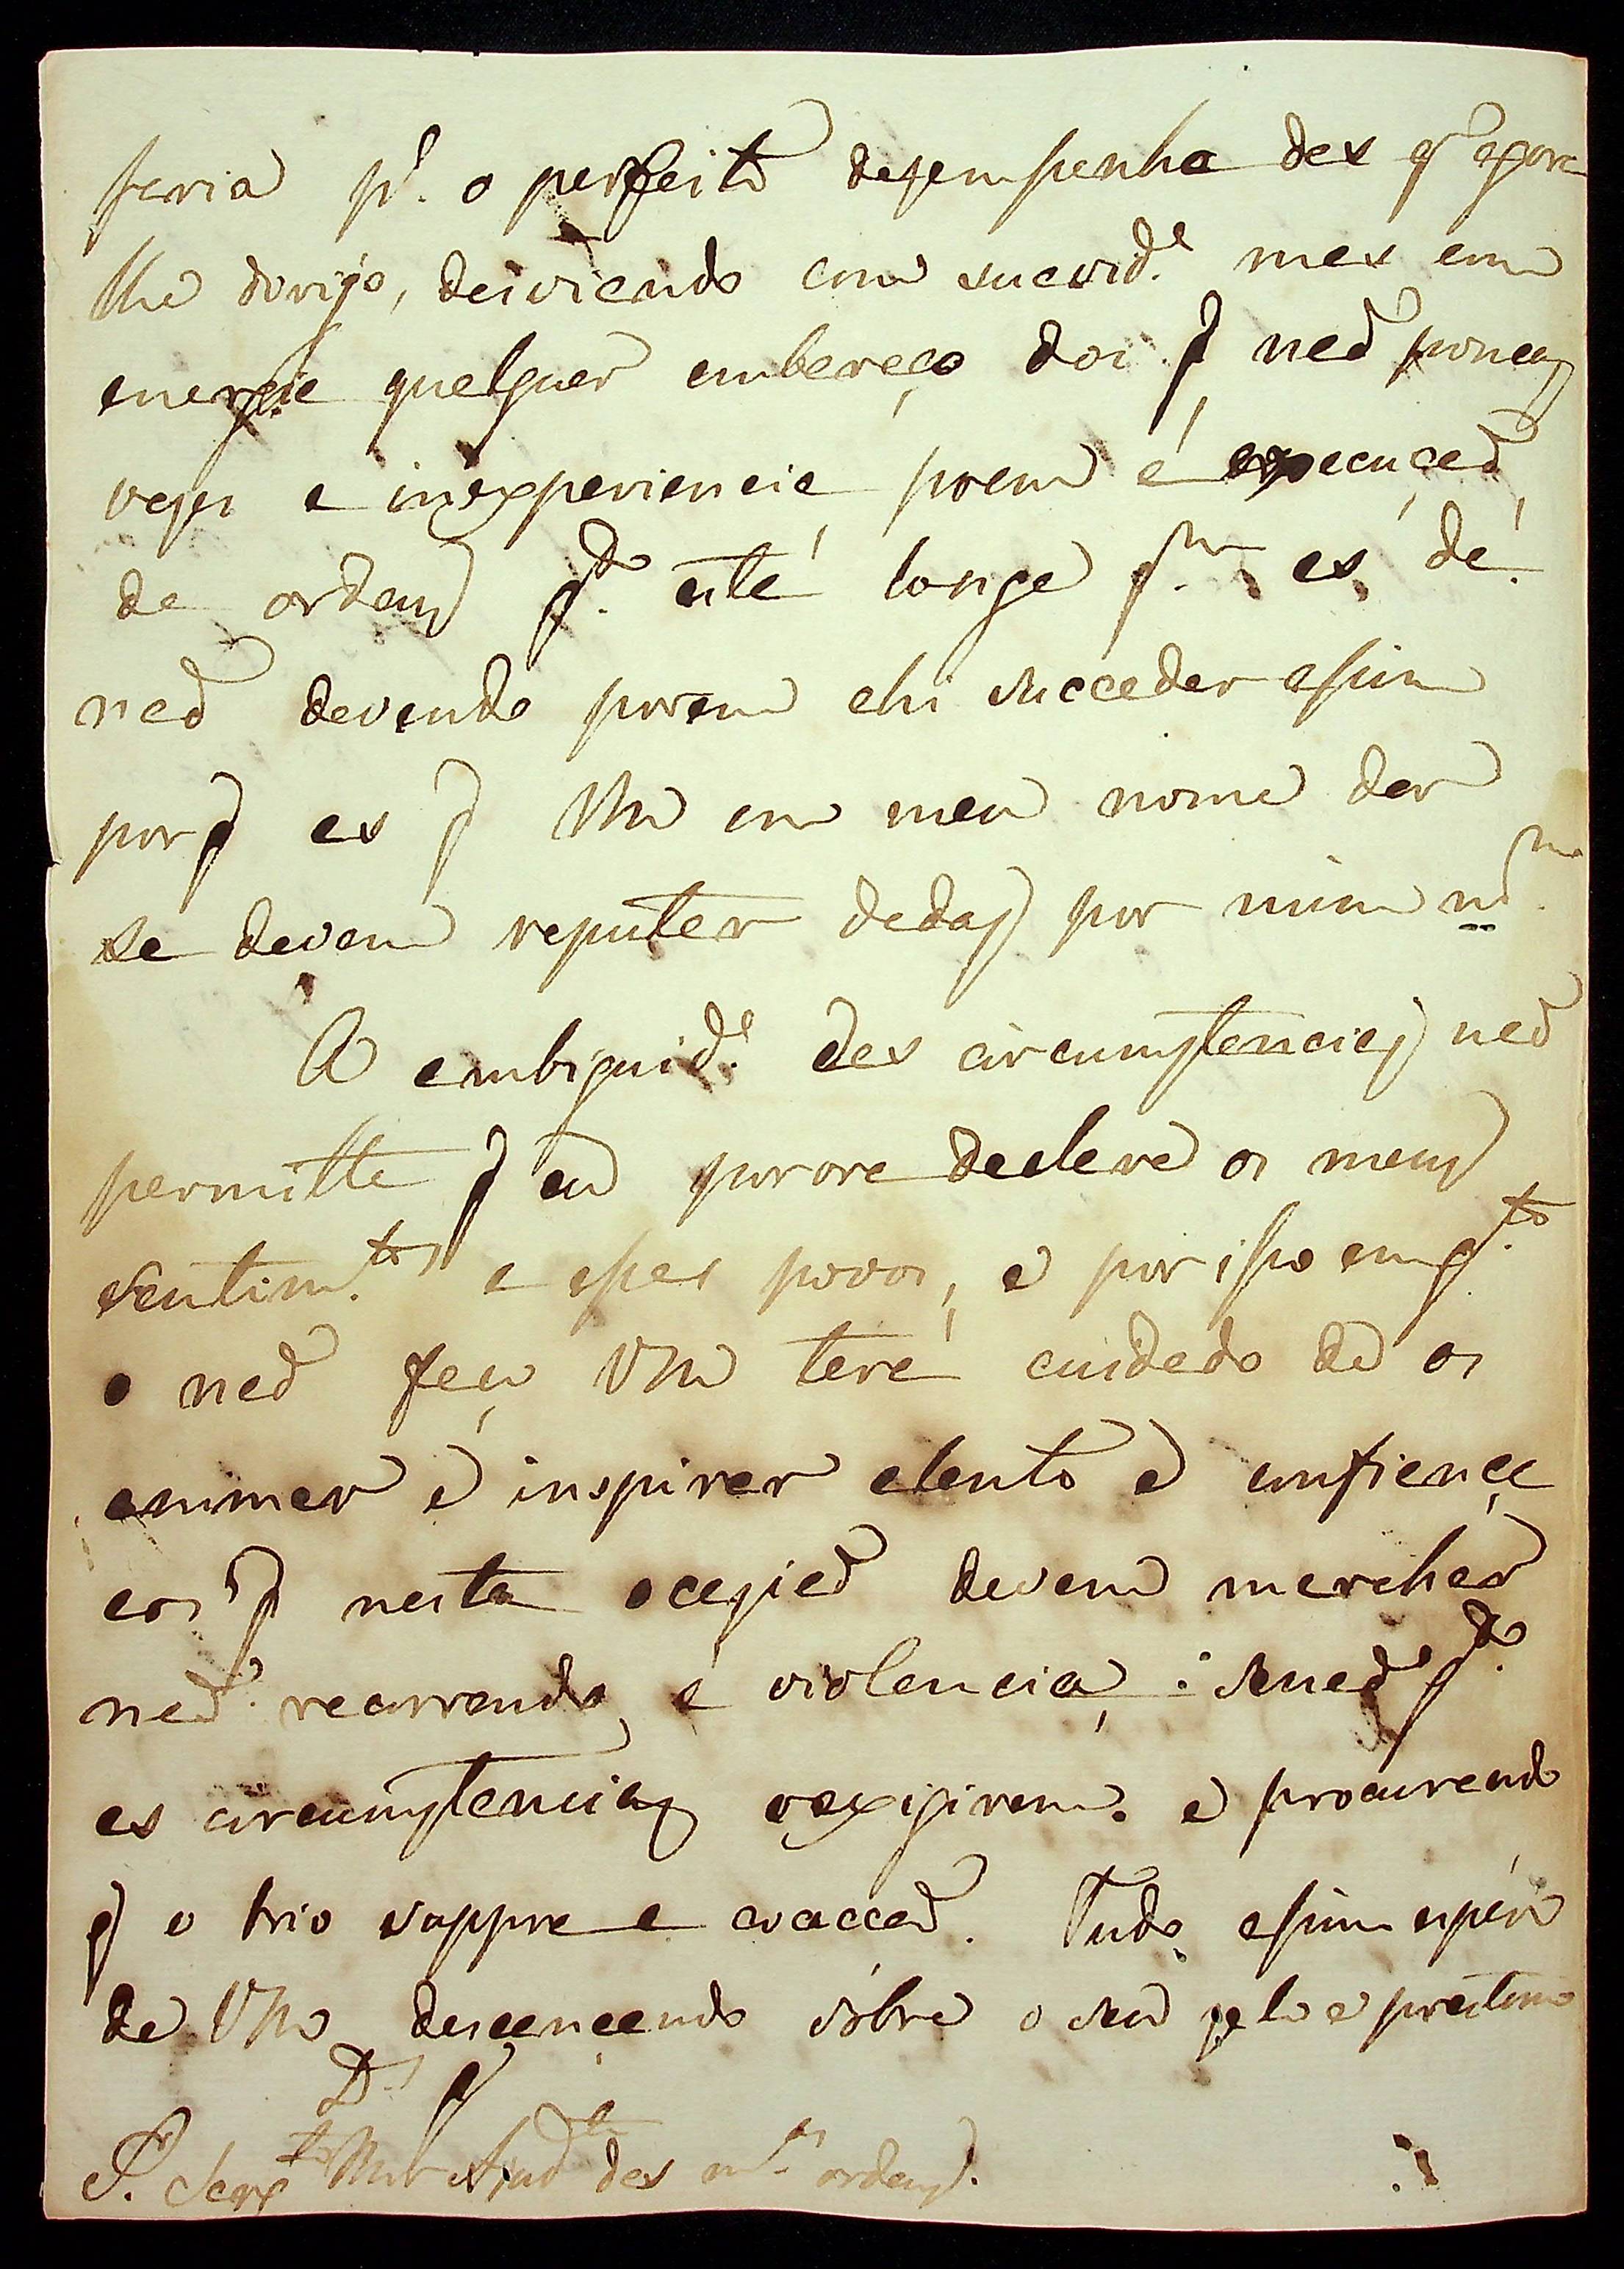 feria p.ª o perfeito dezempenho das q' agora
lhe dirijo, desviando com suavid.e mas com
energia qualquer embaraço dos q' não poucas
vezes a inexperiencia poem á execução
de ordens q.do até longe q.m as dá.
não devendo porem ahi succeder assim
porq' as q' Vm em meu nome der
se devem reputar dadas por mim m.mo
A ambiguid.e das circumstancias não
permitte q' eu por ora declare os meus
sentim.tos a esses povos, e por isso em q.to
o não faço Vm terá cuidado de os
animar e inspirar alento e confiança
aos q' nesta ocazião devem marchar
não recorrendo á violencia: senão q.do
as circumstancias o exigirem. e procurando
q' o brio suppra a coacção. Tudo assim espero
de Vm descançando sôbre o seu zelo e prestimo
D.s g
S.r Sarg.to Mor Ajud.te das m.as ordens.